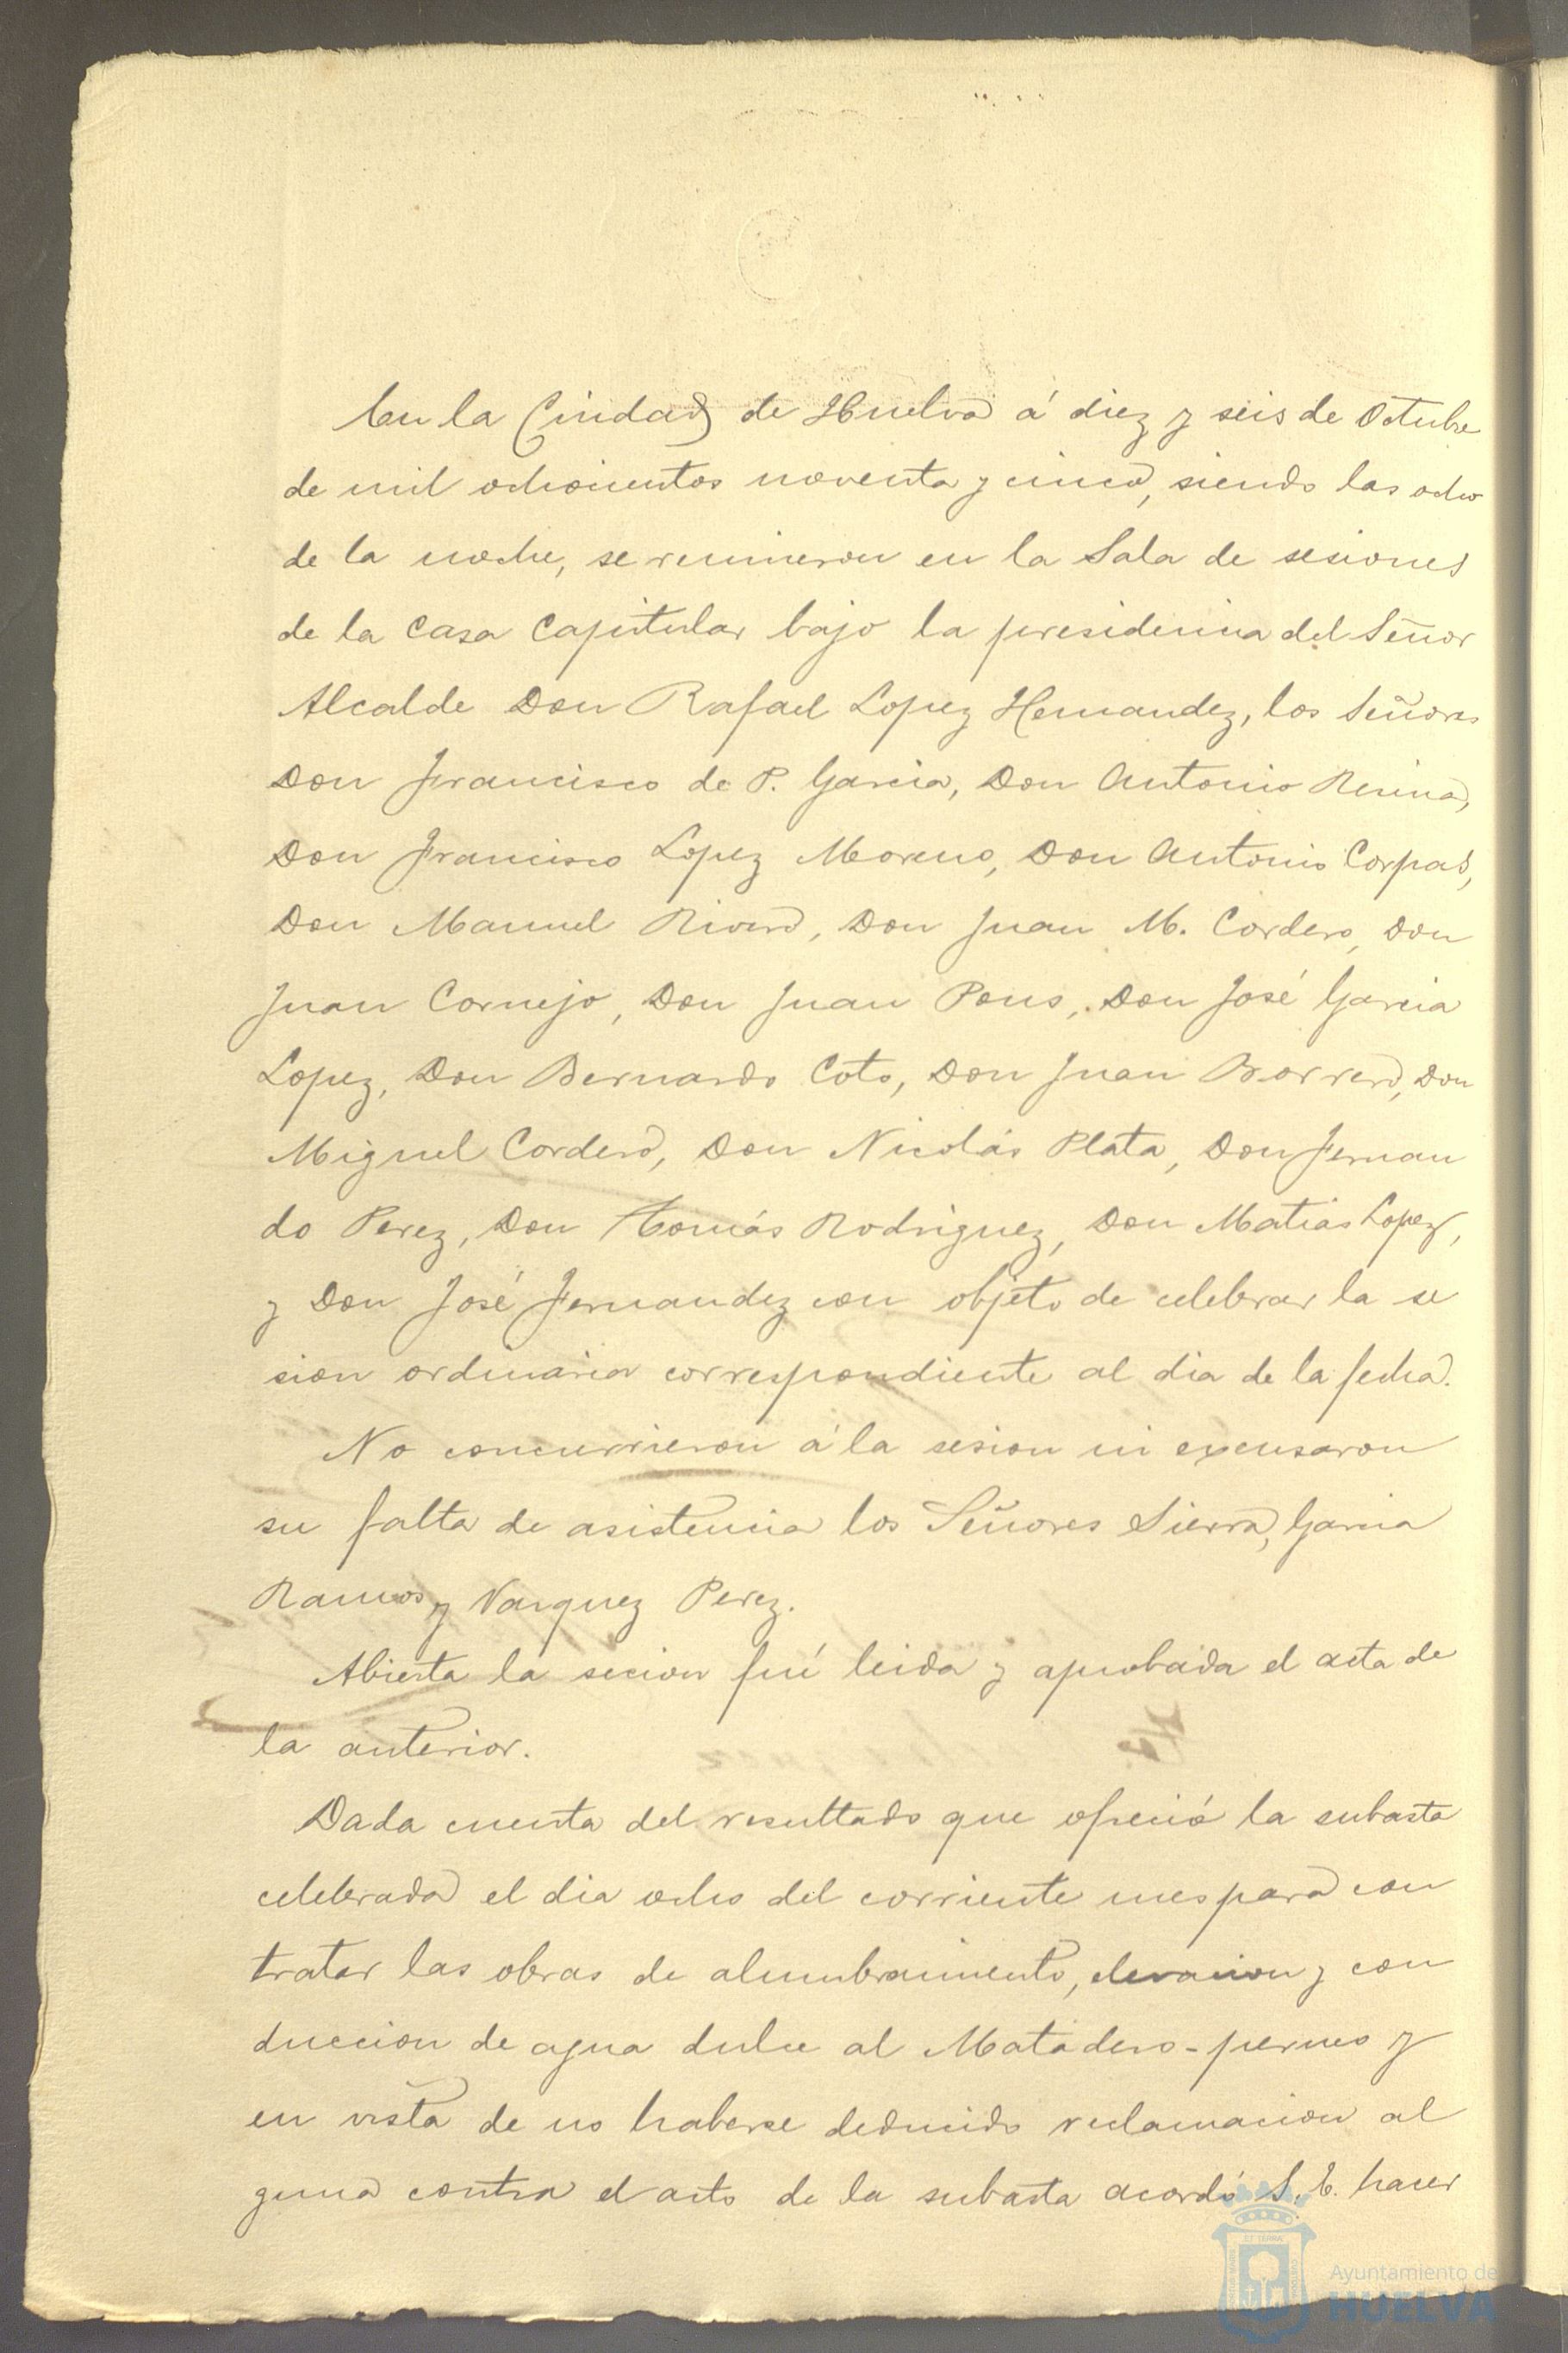 En la Ciudad de Huelva á diez y seis de Octubre
de mil ochocientos noventa y cinco, siendo las ocho
de la noche, se reunieron en la Sala de sesiones
de la Casa Capitular bajo la presidencia del Señor
Alcalde Don Rafael Lopez Hernandez, los Señores
Don Francisco de P. Garcia, Don Antonio Resina,
Don Francisco Lopez Moreno, Don Antonio Corpas,
Don Manuel Rivero, Don Juan M. Cordero, Don
Juan Cornejo, Don Juan Pons, Don José Garcia
Lopez, Don Bernardo Coto, Don Juan Borrero, Don
Miguel Cordero, Don Nicolás Plata, Don Fernan
do Perez, Don Tomás Rodriguez, Don Matias Lopez,
y Don José Fernandez con objeto de celebrar la se
sion ordinaria correspondiente al dia de la fecha.
No concurrieron á la sesion ni excusaron
su falta de asistencia los Señores Sierra, Garcia
Ramos y Vazquez Perez.
Abierta la secion fué leida y aprobada el acta de
la anterior.
Dada cuenta del resultado que ofreció la subasta
celebrada el dia ocho del corriente mes para con
tratar las obras de alumbramiento, elevacion y con
duccion de agua dulce al Matadero-
en vista de no haberse deducido reclamacion al
guna contra el acto de la subasta acordó S. E. hacer
Ayuntamiento de
HUELVA